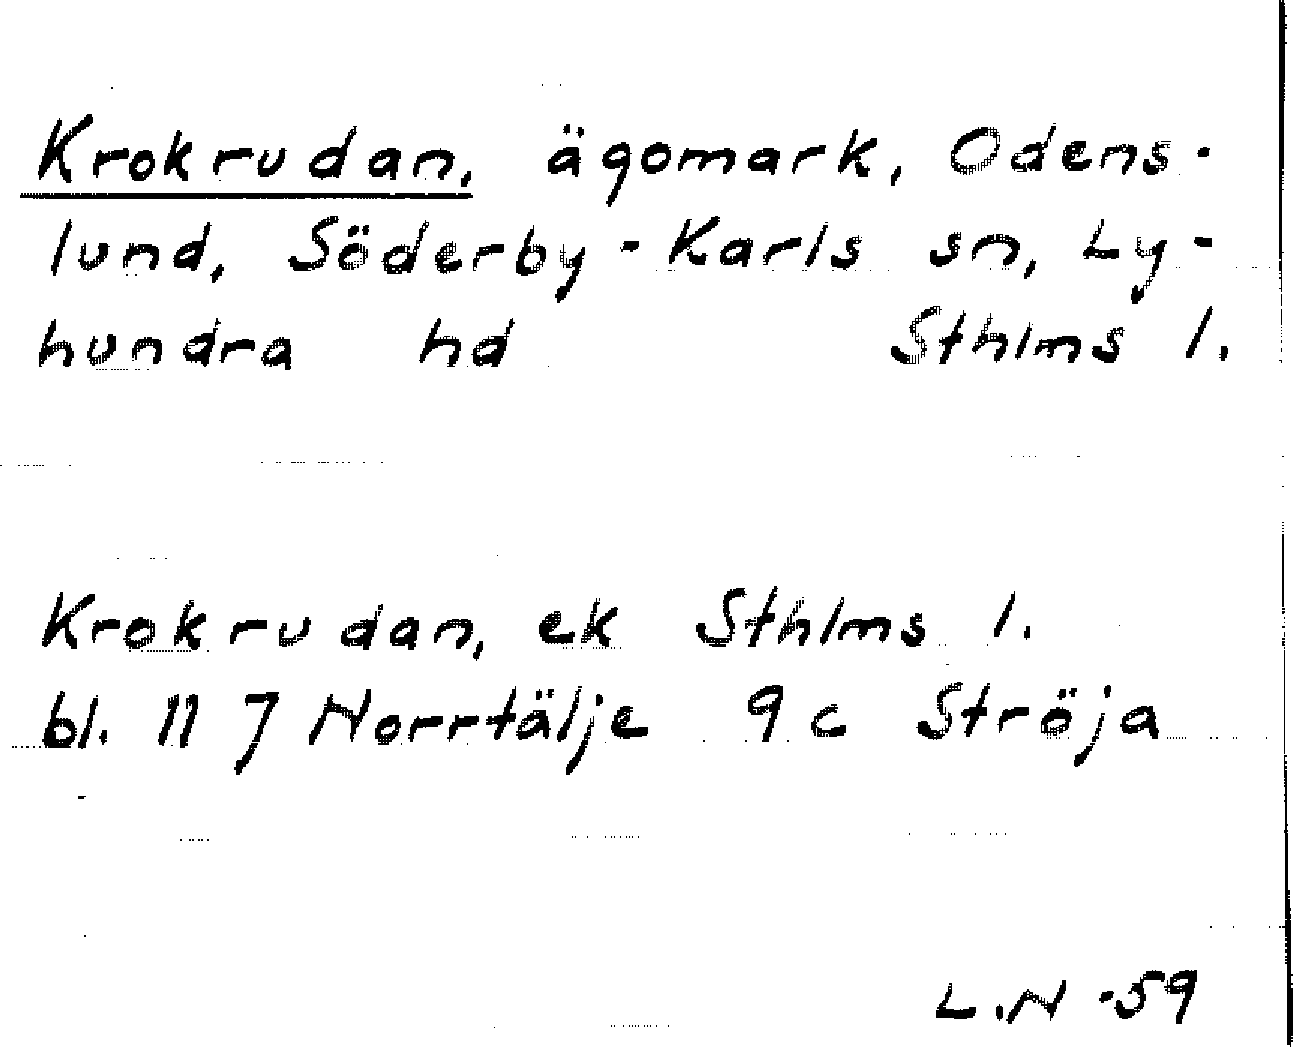 Krokrudan, ägomark, Odens-
lund, Söderby-Karls sn, Ly-
hundra hd Sthlms l.
Krokrudan, ek Sthlms l.
bl. 11 J Norrtälje 9 c Ströja
L.N -59